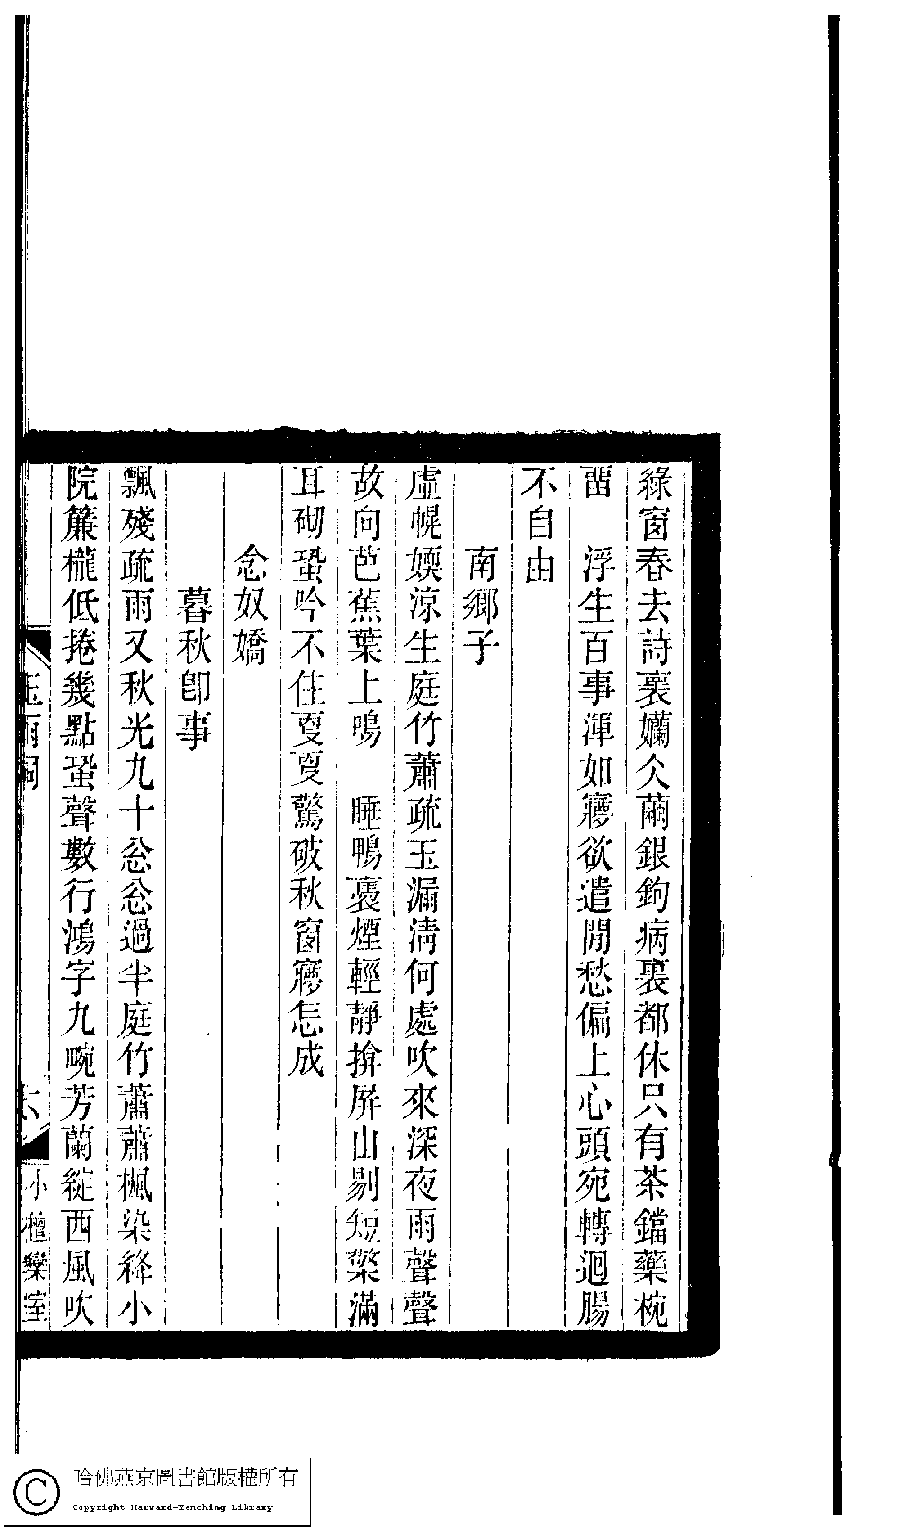 綠窗春去詩裏孏仌繭銀鉤病裏都休只有茶鐺藥椀
畱　浮生百事渾如㝱欲遣閒愁偏上心頭宛轉迴腸
不自由
南鄉子
虛幌㛲涼生庭竹蕭疏玉漏淸何處吹來深夜雨聲聲
故向芭蕉葉上鳴　睡鴨裛煙輕靜揜屏山剔短檠滿
耳砌蛩吟不住戛戛驚破秋窗㝱怎成
念奴嬌
暮秋卽事
飄殘疏雨又秋光九十怱怱過半庭竹蕭蕭楓染絳小
院簾櫳低捲幾點蛩聲數行鴻字九畹芳蘭綻西風吹
玉雨詞
六
小檀欒室
哈佛燕京圖書館版權所有
Copyright Harvard-Yenching Library